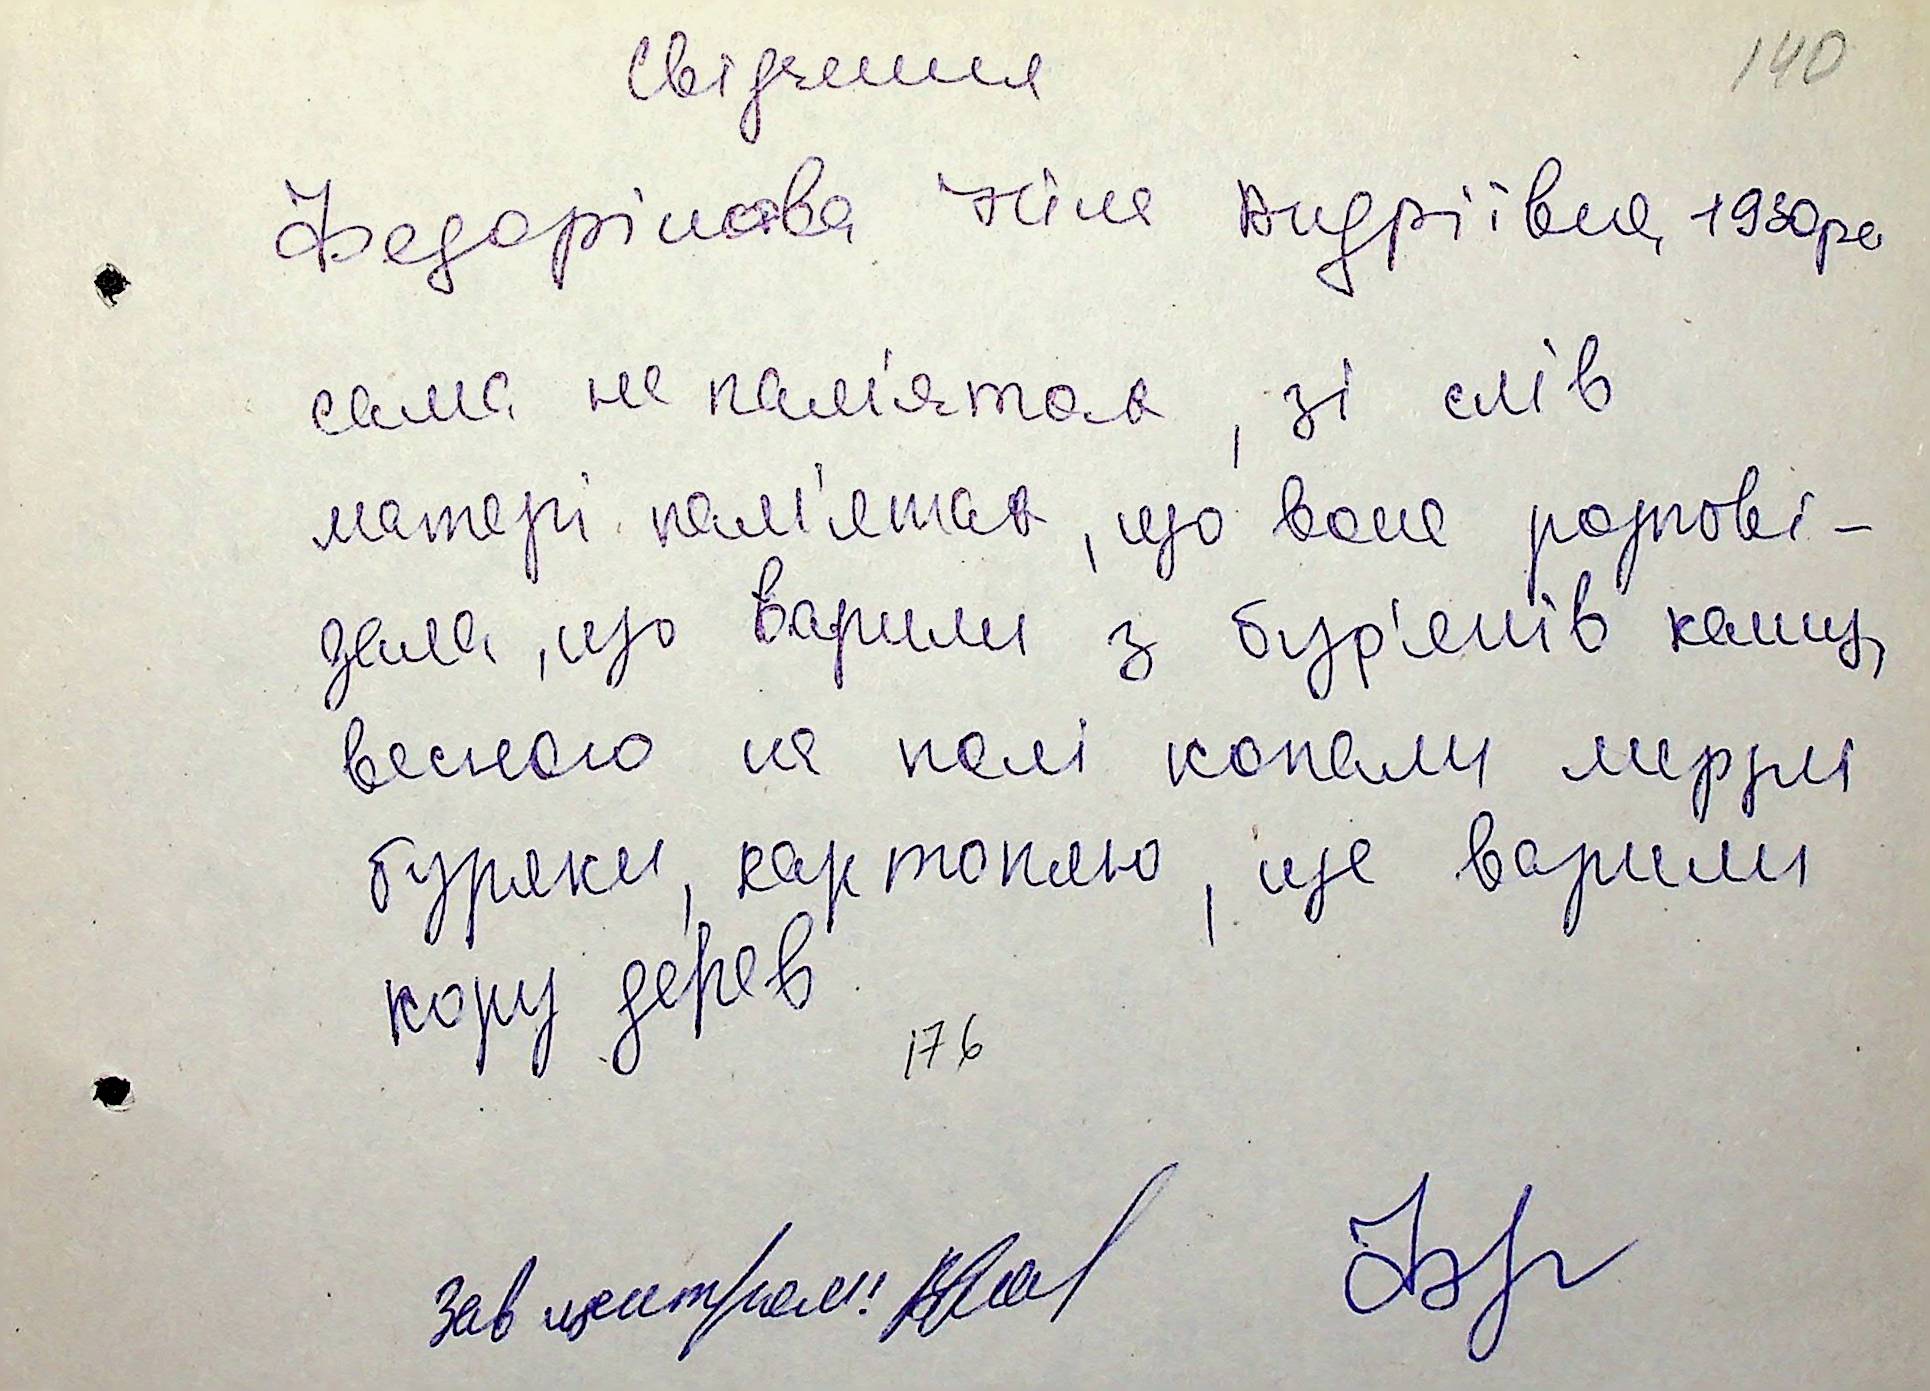 140
Свідчення
Федорінова Ніна Андріївна, 1930р.
сама не пам'ятає, зі слів
матері пам'ятає, що вона розпові-
дала, що варили з бур'янів кашу,
весною на полі копали мерзлі
буряки, картоплю, ще варили
кору дерев
176
Зав центром: